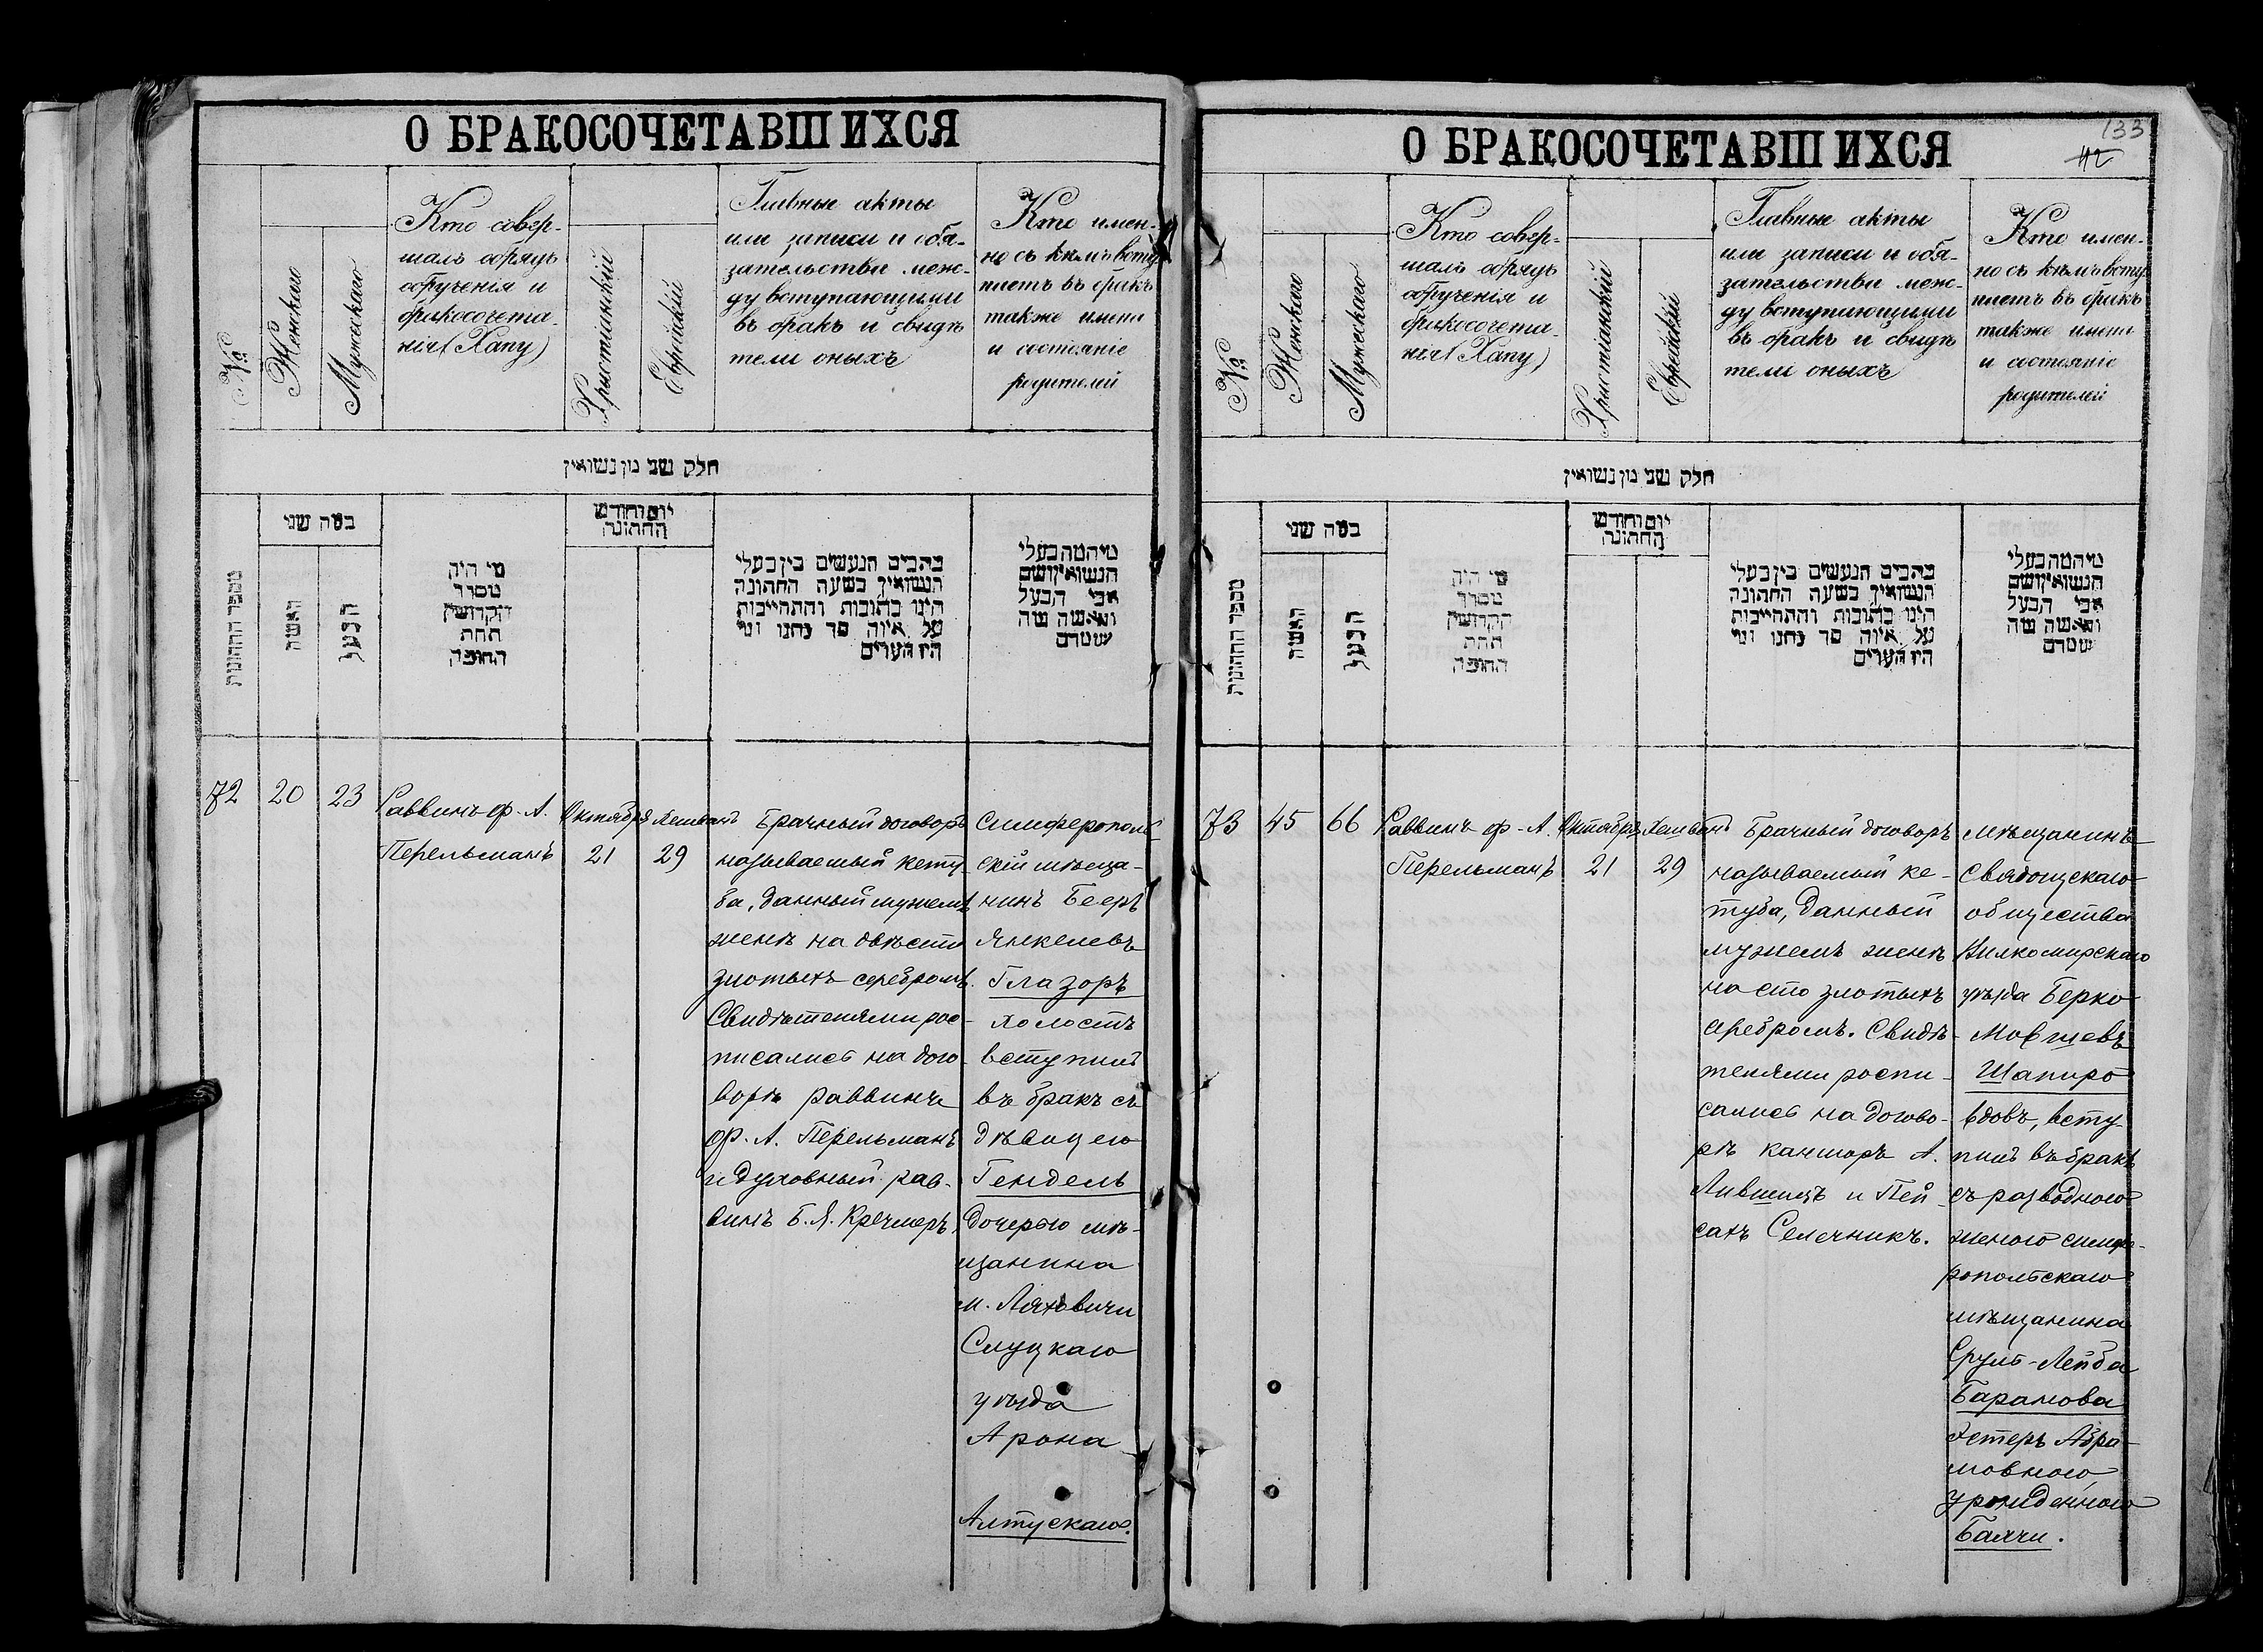 О БРАКОСОЧЕТАВШИХСЯ
№
Женскаго
Мужескаго
Кто совер-
шалъ обрядъ
обрученія и
бракосочета-
нія (Хапу)
Христіанскій
Еврейскій
Главные акты
или записи и обя-
зательства меж-
ду вступающими
въ бракъ и свидѣ
тели оныхъ
Кто имен-
но съ кѣмъ всту
паетъ въ бракъ
также имена
и состояніе
родителей
חלק שני מן נשואין
מספר החתונות
כמה שני
האשה
הבעל
מי היה
מסדר
הקדושין
תחת
החופה
יום וחודש
החתונה
כתבים הנעשים בין בעלי
הנשואין בשעה החתונה
הינו כתובות והתחייבות
על איזה סך נתנו ומי
היו העדים
מיהמה בעלי
הנשואין ושם
אבי הבעל
והאשה מה
שטרם
72
20
23
Раввинъ ф-А.
Перельманъ
Октября
21
Хешванъ
29
Брачный договоръ
называемый кету-
ба, данный мужемъ
женѣ на двѣсти
злотыхъ серебромъ.
Свидѣтелями рос-
писались на дого-
ворѣ раввинъ
ф-А. Перельманъ
и духовный рав-
винъ Б.Я. Кречмеръ.
Симферополь
скій мѣща-
нинъ Бееръ
Янкелевъ
Глазоръ
холостъ
вступилъ
въ бракъ съ
дѣвицею
Гендель
дочерью мѣ-
щанина
м. Ляховичи
Слуцкаго
уѣзда
Арона
Алтускаго.
О БРАКОСОЧЕТАВШИХСЯ
133
42
№
Женскаго
Мужескаго
Кто совер-
шалъ обрядъ
обрученія и
бракосочета-
нія (Хапу)
Христіанскій
Еврейскій
Главные акты
или записи и обя-
зательства меж-
ду вступающими
въ бракъ и свидѣ
тели оныхъ
Кто имен-
но съ кѣмъ всту
паетъ въ бракъ
также имена
и состояніе
родителей
חלק שני מן נשואין
מספר החתונות
כמה שני
האשה
הבעל
מי היה
מסדר
הקדושין
תחת
החופה
יום וחודש
החתונה
כתבים הנעשים בין בעלי
הנשואין בשעה החתונה
הינו כתובות והתחייבות
על איזה סך נתנו ומי
היו העדים
מיהמה בעלי
הנשואין ושם
אבי הבעל
והאשה מה
שטרם
73
45
66
Раввинъ ф-А.
Перельманъ
Октября
21
Хешванъ
29
Брачный договоръ
называемый ке-
туба, данный
мужемъ женѣ
на сто злотыхъ
серебромъ. Свидѣ-
телями роспи-
сались на догово-
рѣ канторъ А.
Лившицъ и Пей-
сахъ Селечникъ.
Мѣщанинъ
Свядощскаго
общества
Вилкомирскаго
уѣзда Берко
Мовшевъ
Шапиро
вдовъ, всту-
пилъ въ бракъ
съ разводною
женою симфе-
ропольскаго
мѣщанина
Сруль-Лейба
Баранова
Эстеръ Абра-
мовною
урожденною
Балчи.